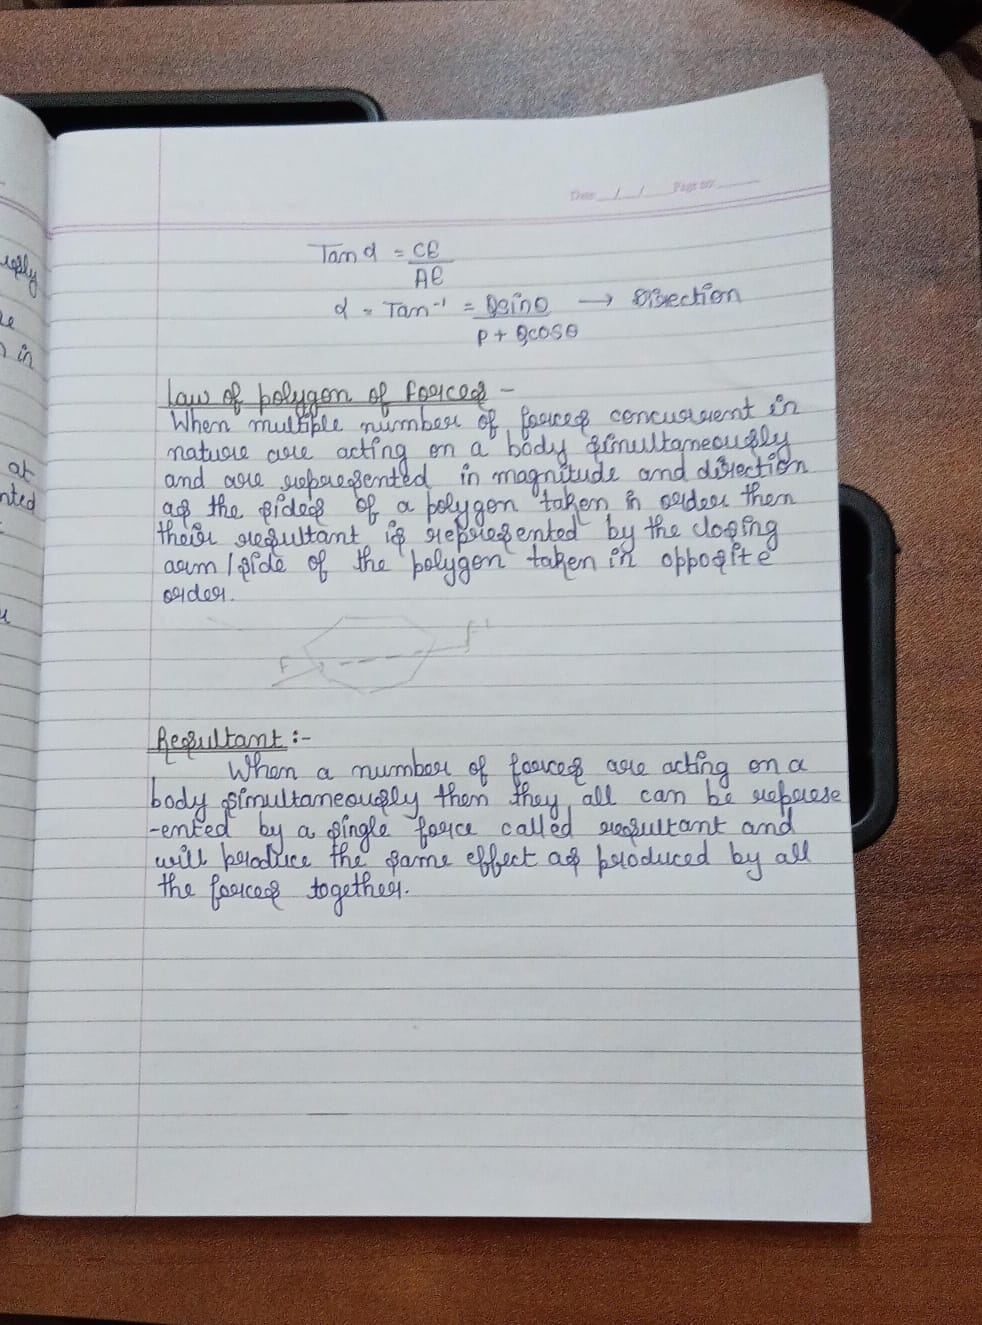 Date __/__/__ Page no: ____
Tan α = CE
AE
α = Tan⁻¹ = Qsinθ → Direction
P + Qcosθ
Law of polygon of forces -
When multiple number of forces concurrent in
nature are acting on a body simultaneously
and are represented in magnitude and direction
as the sides of a polygon taken in order then
their resultant is represented by the closing
arm / side of the polygon taken in opposite
order.
F
Resultant :-
When a number of forces are acting on a
body simultaneously then they all can be represe
-ented by a single force called resultant and
will produce the same effect as produced by all
the forces together.
in
at